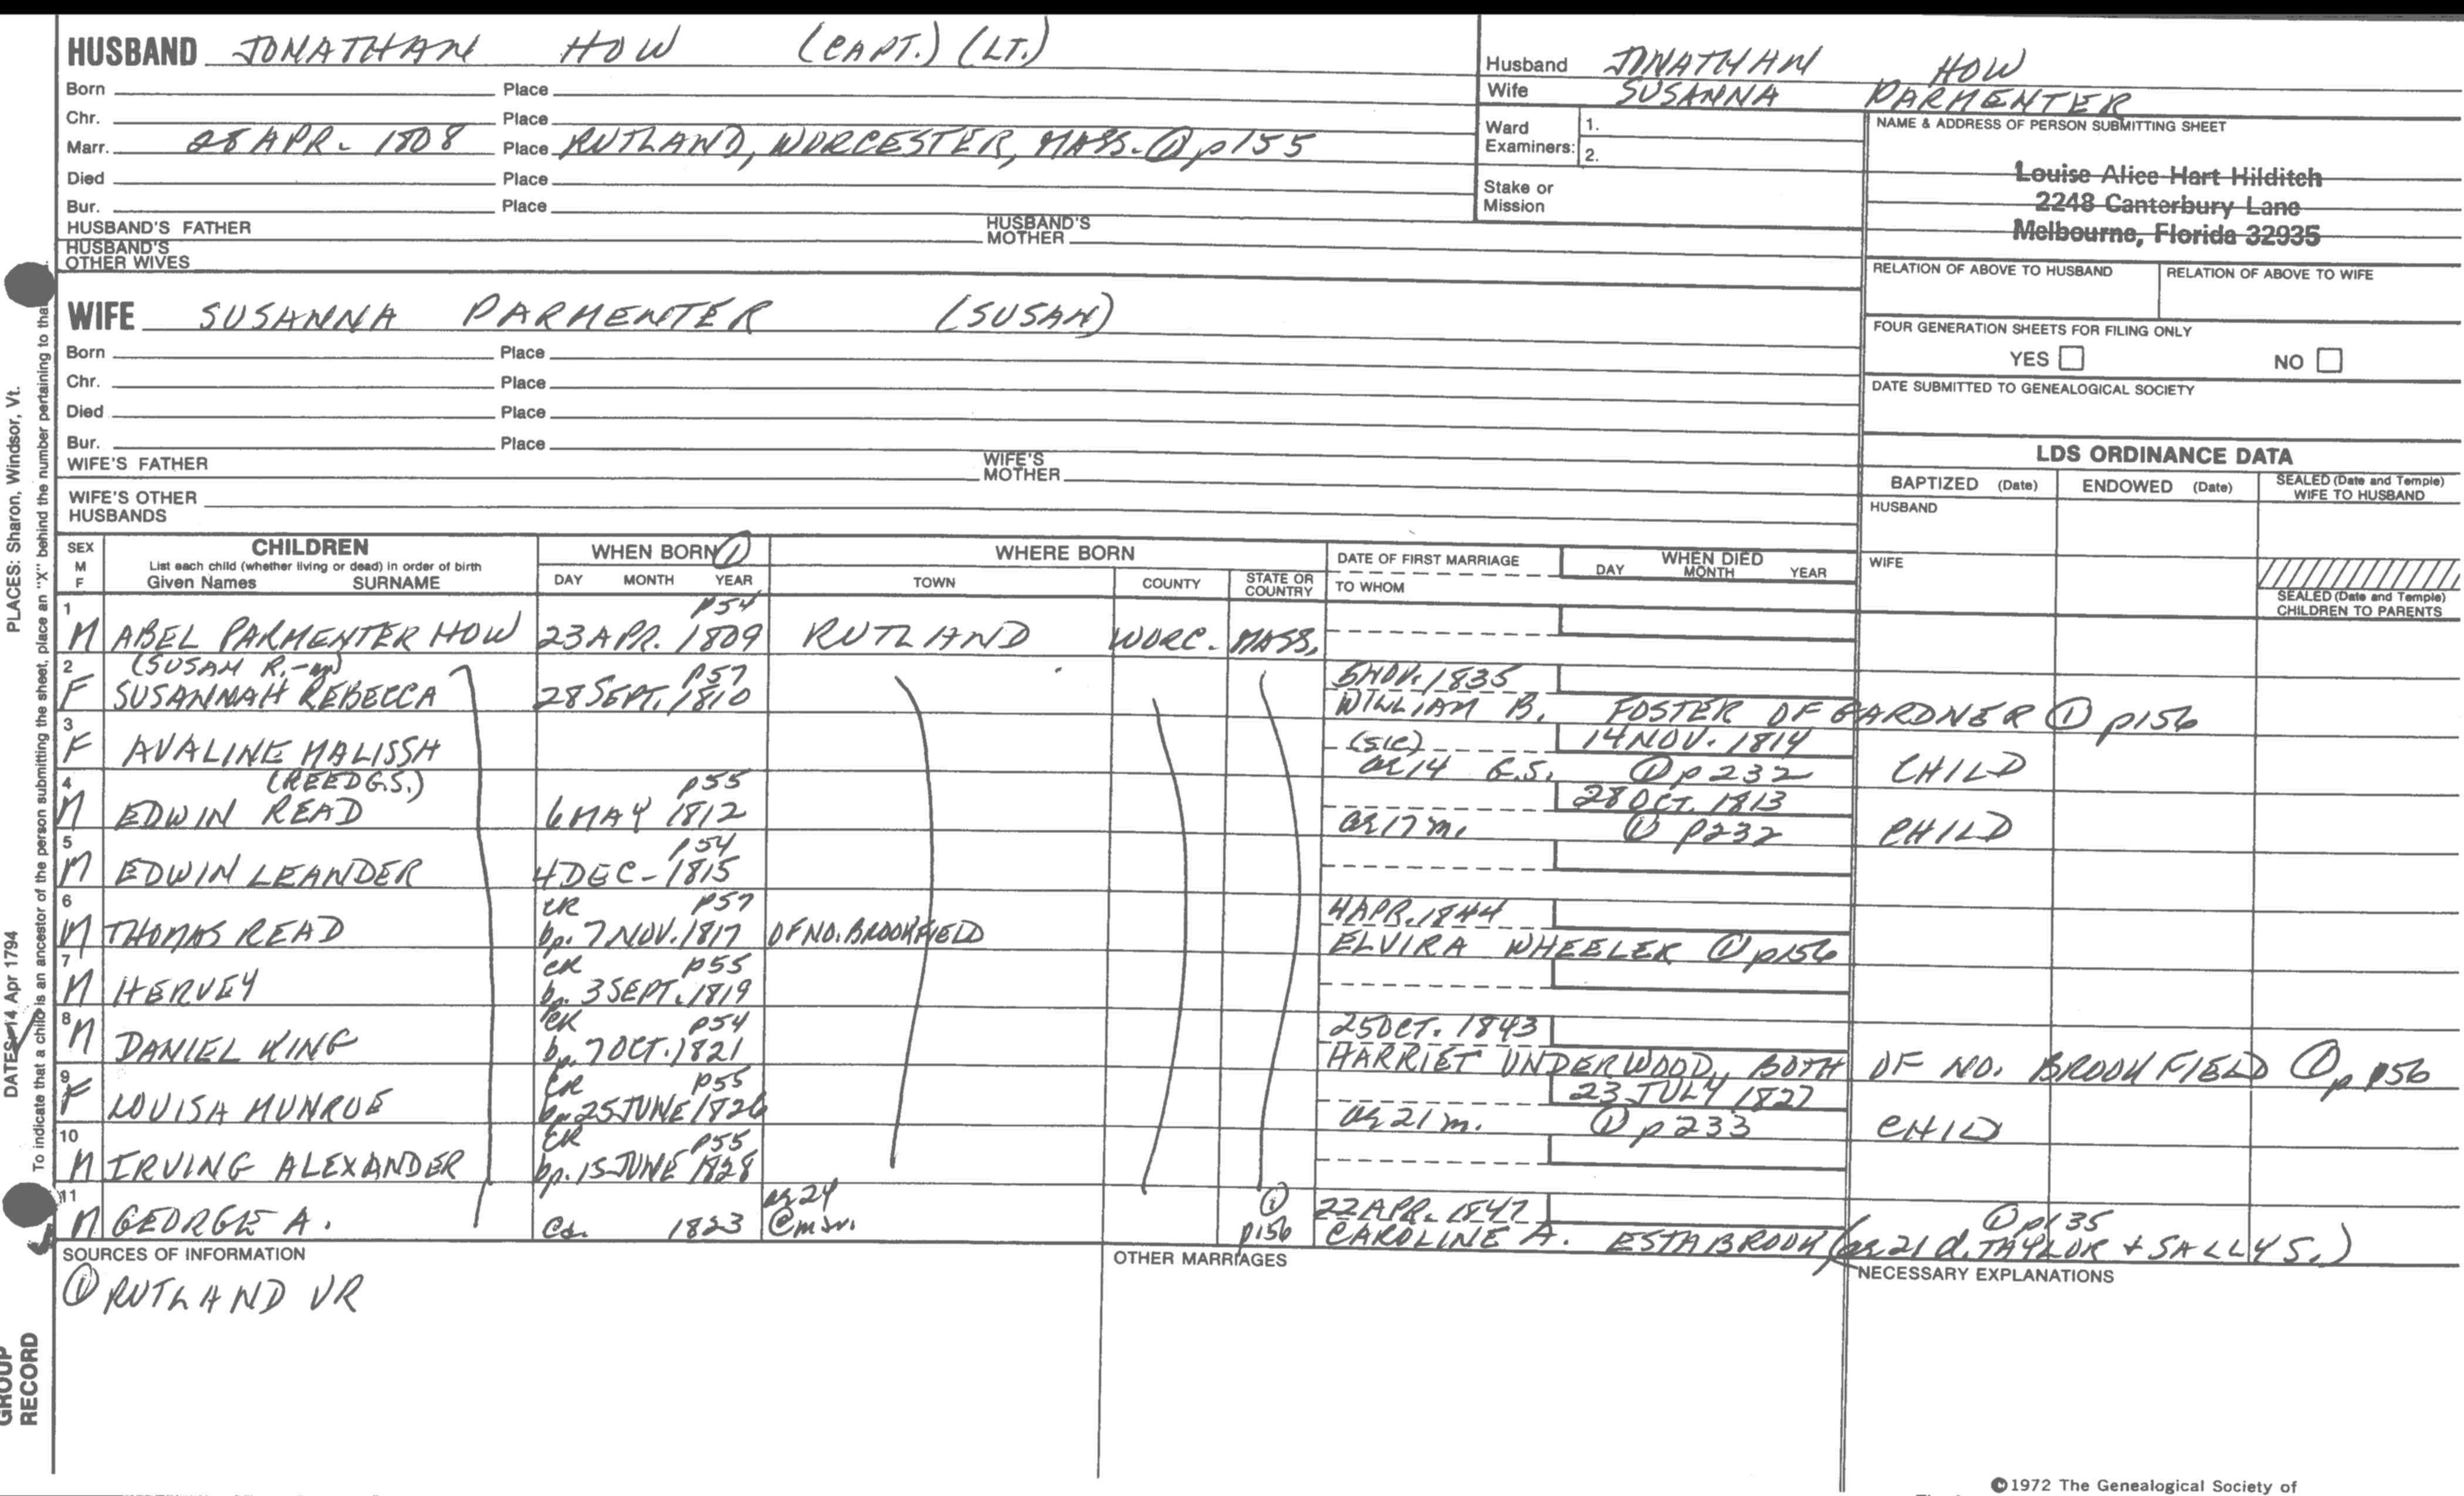 HUSBAND JONATHAN HOW (CAPT.) (LT.)
Born Place
Chr. Place
Marr. 28 APR. 1808 Place RUTLAND, WORCESTER, MASS. ① p155
Died Place
Bur. Place
HUSBAND'S FATHER HUSBAND'S MOTHER
HUSBAND'S OTHER WIVES
Husband JONATHAN HOW
Wife SUSANNA PARMENTER
Ward Examiners: 1.
2.
Stake or Mission
NAME & ADDRESS OF PERSON SUBMITTING SHEET
Louise Alice Hart Hilditch
2248 Canterbury Lane
Melbourne, Florida 32935
RELATION OF ABOVE TO HUSBAND RELATION OF ABOVE TO WIFE
FOUR GENERATION SHEETS FOR FILING ONLY
YES NO
DATE SUBMITTED TO GENEALOGICAL SOCIETY
WIFE SUSANNA PARMENTER (SUSAN)
Born Place
Chr. Place
Died Place
Bur. Place
WIFE'S FATHER WIFE'S MOTHER
WIFE'S OTHER HUSBANDS
LDS ORDINANCE DATA
BAPTIZED (Date) ENDOWED (Date) SEALED (Date and Temple) WIFE TO HUSBAND
HUSBAND
WIFE
SEALED (Date and Temple) CHILDREN TO PARENTS
SEX M F CHILDREN WHEN BORN ① WHERE BORN DATE OF FIRST MARRIAGE WHEN DIED
List each child (whether living or dead) in order of birth
Given Names SURNAME DAY MONTH YEAR TOWN COUNTY STATE OR COUNTRY TO WHOM DAY MONTH YEAR
1 p54
M ABEL PARMENTER HOW 23 APR. 1809 RUTLAND WORC. MASS.
2 (SUSAN R.-m) p57 5 NOV. 1835
F SUSANNAH REBECCA 28 SEPT. 1810 WILLIAM B. FOSTER OF GARDNER ① p156
3 (SIC) 14 NOV. 1814
F AVALINE MALISSH ae 14 G.S. ① p232 CHILD
4 (REED G.S.) p55 28 OCT. 1813
M EDWIN READ 6 MAY 1812 ae 17 m. ① p232 CHILD
5 p54
M EDWIN LEANDER 4 DEC- 1815
6 CR p57 4 APR. 1844
M THOMAS READ bp. 7 NOV. 1817 OF NO. BROOKFIELD ELVIRA WHEELER ① p156
7 CR p55
M HERVEY bp. 3 SEPT. 1819
8 CR p54 25 OCT. 1843
M DANIEL KING bp. 7 OCT. 1821 HARRIET UNDERWOOD, BOTH OF NO. BROOKFIELD ① p 156
9 CR p55 23 JULY 1827
F LOUISA MUNROE bp. 25 JUNE 1826 ae 21 m. ① p233 CHILD
10 CR p55
M IRVING ALEXANDER bp. 15 JUNE 1828
11 ae 24 ① 22 APR. 1847 ① p135
M GEORGE A. Ca. 1823 @ marr. p156 CAROLINE A. ESTABROOK (ae 21 d. TAYLOR + SALLY S.)
SOURCES OF INFORMATION OTHER MARRIAGES NECESSARY EXPLANATIONS
① RUTLAND VR
©1972 The Genealogical Society of
PLACES: Sharon, Windsor, Vt.
DATES: 14 Apr 1794
To indicate that a child is an ancestor of the person submitting the sheet, place an "X" behind the number pertaining to that
GROUP
RECORD